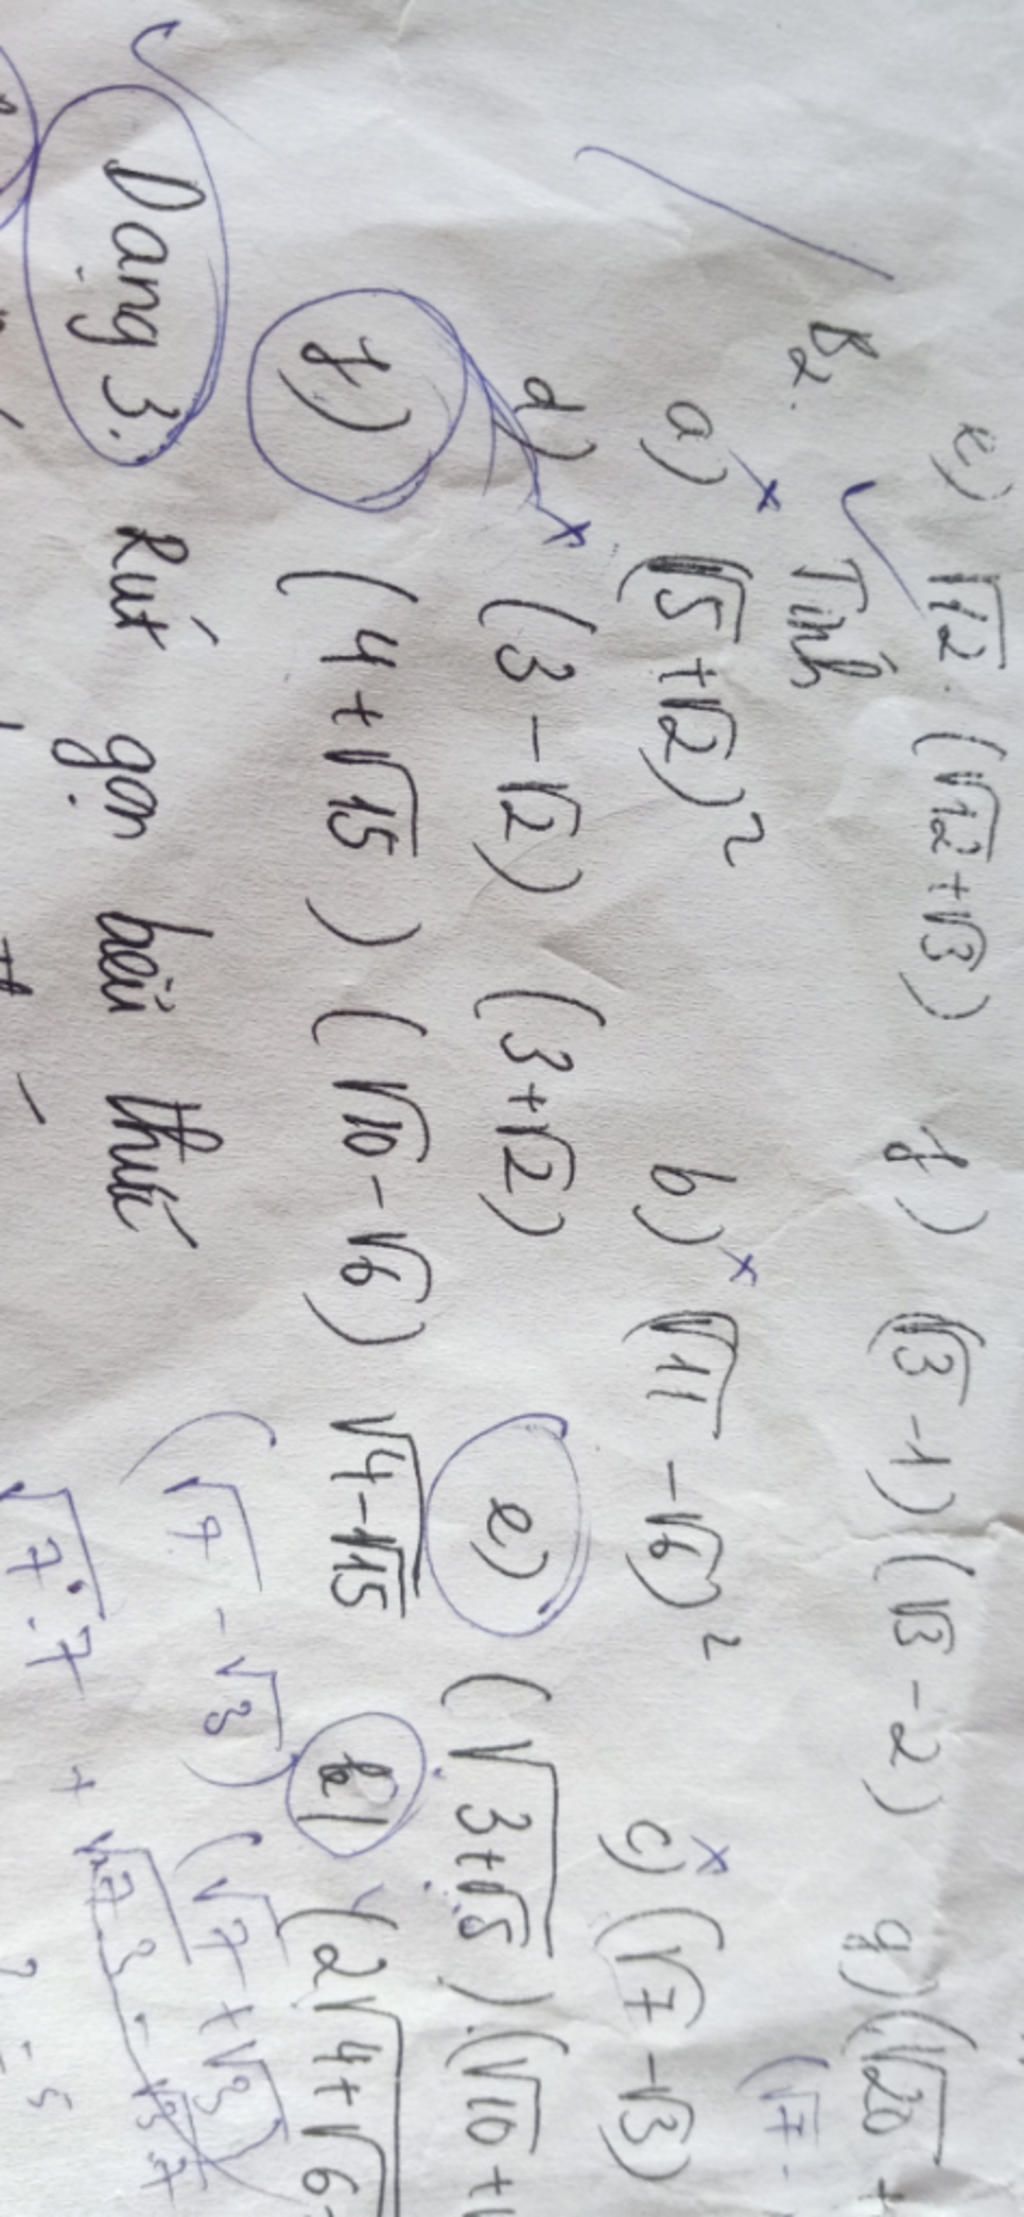 e) √12 . (√12 + √3) f) (√3 - 1) (√3 - 2) g) (√20 +
B2. Tính (√7 -
a) (√5 + √2)² b) (√11 - √6)² c) (√7 - √3)
d) (3 - √2) (3 + √2) e) (√(3+√5)) (√10 +
f) (4 + √15) (√10 - √6) √(4-√15) (2√(4+√6
(√7 - √3) (√7 + √3)
Dạng 3. Rút gọn biểu thức
√7.7 +